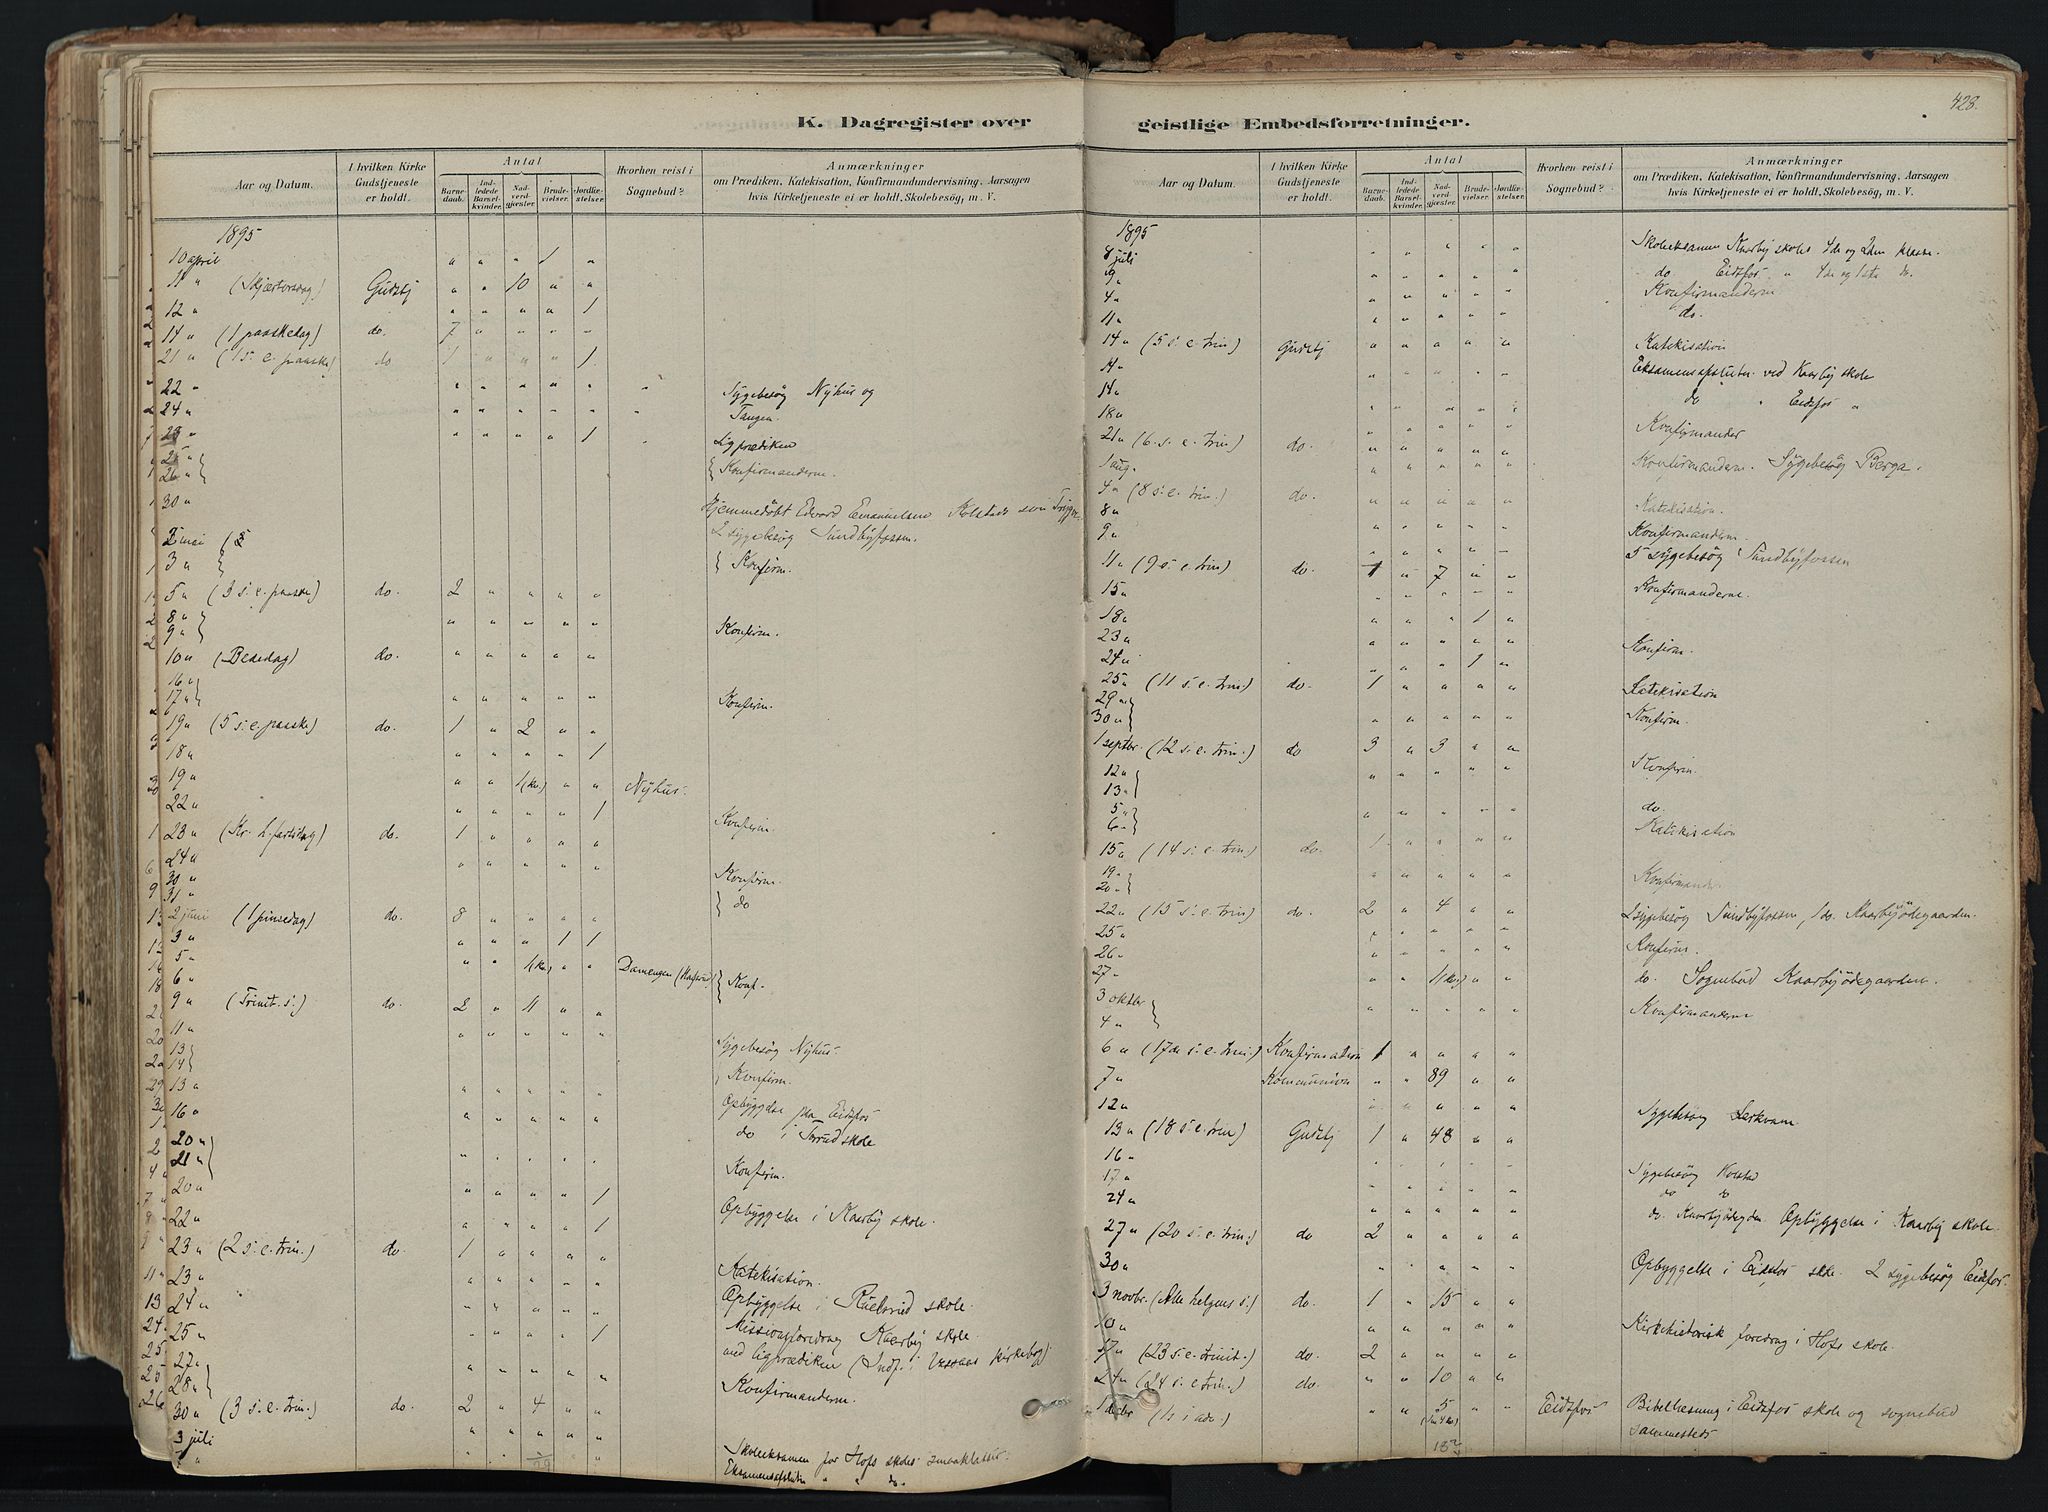 428.
K. Dagregister over geistlige Embedsforretninger.
Aar og Datum.
I hvilken Kirke Gudstjeneste er holdt.
Antal
Barne-daab.
Ind-ledede Barsel-kvinder.
Nad-verd-gjester.
Brude-vielser.
Jordfæ-stelser.
Hvorhen reist i Sognebud?
Anmærkninger
om Prædiken, Katekisation, Konfirmandundervisning, Aarsagen
hvis Kirketjeneste ei er holdt, Skolebesög, m. V.
1895
10 april " " " 1 "
11 " (Skjærtorsdag) Gudstj " " 10 " "
12 " " " " " 1
14 " (1 paaskedag) do. 7 " " " "
21 " (1 s. e. paaske) do 1 " " " 1
22 " " " " " " " Sygebesøg Nyhus og
24 " " " " " " " Tangen.
" " " " 1 Ligprædiken
26 " } } Konfirmanderne.
30 " Hjemmedöbt Edvard Emanuelsen Kolstad
mai 2 sygebesög Sundbyfossen.
3 " } } Konfirm.
5 " (3 s. e. paaske) do. 2 " " " "
8 "
9 " } " " " " " Konfirm.
10 " (Bededag) do. " " " " "
16 "
17 " } " " " " " Konfirm.
19 " (5 s. e. paaske) do. 1 " 2 " "
18 " " " " " 1
19 " " " 1 (kv.) " " Nyhus.
22 " " " " " 1
23 " (Kr. h.fartsdag) do. 1 " " " " Konfirm.
24 " " " " " "
30 " Konfirm.
31 " } do
2 juni (1 pinsedag) do. 8 " " " "
3 " " " " 1 1
5 "
6 " " " 1 (kv.) " " Damengen } Konf.
9 " (Trinit. s.) do. 2 " 11 " "
11 " " " " " " Sygebesøg Nyhus.
13
14 } } Konfirm.
13 " " " " " " Opbyggelse paa Eidsfos
16 " " " " " " do i skole
20 "
21 " } " " " " " Konfirm.
20 " " " " " 1
22 " " " " " 1 Opbyggelse i Kaarby skole.
23 " (2 s. e. trin.) do. 1 " " " "
23 " " " " " " Katekisation.
24 " " " " " " Opbyggelse i skole.
25 " " " " " 1 Missionsforedrag Kaarby skole.
27 " med ligprædiken (Indf. i kirkebog)
28 " } " " " " " Konfirmanderne.
30 " (3 s. e. trin.) do. 2 " 4 " "
3 juli " " " " " Skoleeksamen for Hofs skoles smaaklasser.
" Eksamensafslutn. " " do.
Aar og Datum.
I hvilken Kirke Gudstjeneste er holdt.
Antal
Barne-daab.
Ind-ledede Barsel-kvinder.
Nad-verd-gjester.
Brude-vielser.
Jordfæ-stelser.
Hvorhen reist i Sognebud?
Anmærkninger
om Prædiken, Katekisation, Konfirmandundervisning, Aarsagen
hvis Kirketjeneste ei er holdt, Skolebesög, m. V.
1895
8 juli " " " " " Skoleeksamen Kaarby skoles 4de og 2den klasse.
9 " " " " " " do Eidsfos " 4de og 1ste do.
4 " " " " " " Konfirmanderne
11 " " " " " " do.
14 " (5 s. e. trin) Gudstj " " " " " Katekisation
14 " Eksamensafslutn. ved Kaarby skole
14 " do " Eidsfos "
18 " " " " " " Konfirmander
21 " (6. s. e. trin) do. " " " " "
1 aug. " " " " " Konfirmandern. Sygebesøg Berga.
4 " (8 s. e. trin.) do. " " " " " Katekisation.
8 " Konfirmandern.
9 " " " " " " 5 sygebesøg Sundbyfossen
11 " (9 s. e. trin) do. 1 " 7 " "
15 " " " " " " Konfirmanderne.
18 " " " " 1 "
23 " " " " " " Konfirm.
24 " " " " 1 "
25 " (11 s. e. trin.) do. 1 " " " " Katekisation
29 "
30 " } " " " " " Konfirm.
1 septbr. (12 s. e. trin.) do 3 " 3 " "
12 "
13 " } " " " " " Konfirm.
5 "
6 " } " " " " " do.
15 " (14 s. e. trin.) do. 1 " " " " Katekisation
19 "
20 " } " " " " " Konfirmander.
22 " (15 s. e. trin) do. 2 " 4 " " 2 sygebesøg Sundbyfossen, 1 do. Kaarbyödegaarden.
25 " " " " " "
26 " " " " " " Konfirm.
27 " " " 1 (kv.) " " do. Sognebud Kaarbyödegaarden.
3 oktbr
4 " } " " " " " Konfirmanderne
6 " (17de s. e. trin.) Konfirmation 1 " " " "
7 " Kommunion " " 89 " "
12 " " " " " " Sygebesøg
13 " (18 s. e. trin) Gudstj 1 " 48 " "
16 " " " " " " Sygebesøg Kolstad
17 " " " " " " do do
24 " " " " " " do. Opbyggelse i Kaarby skole.
27 " (20 s. e. trin.) do 2 " " " "
30 " " " " " " Opbyggelse i Eidsfos skole. 2 sygebesøg Eidsfos.
3 novbr. (Alle helgens s.) do. 1 " 15 " "
10 " " " " " " Kirkehistorisk foredrag i Hofs skole.
17 " (23 s. e. trinit.) do. 2 " " " "
24 " (24 s. e. trin.) do. " " 10 " "
1 decbr (1 s. i adv.) " " 5 " " Eidsfos Bibellæsning i Eidsfos skole og sognebud
sammesteds